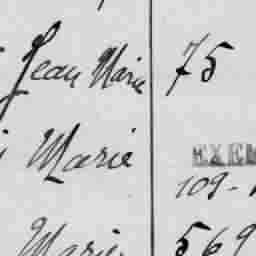 Jean Marie 75
Marie EXEM
109-
Marie 569